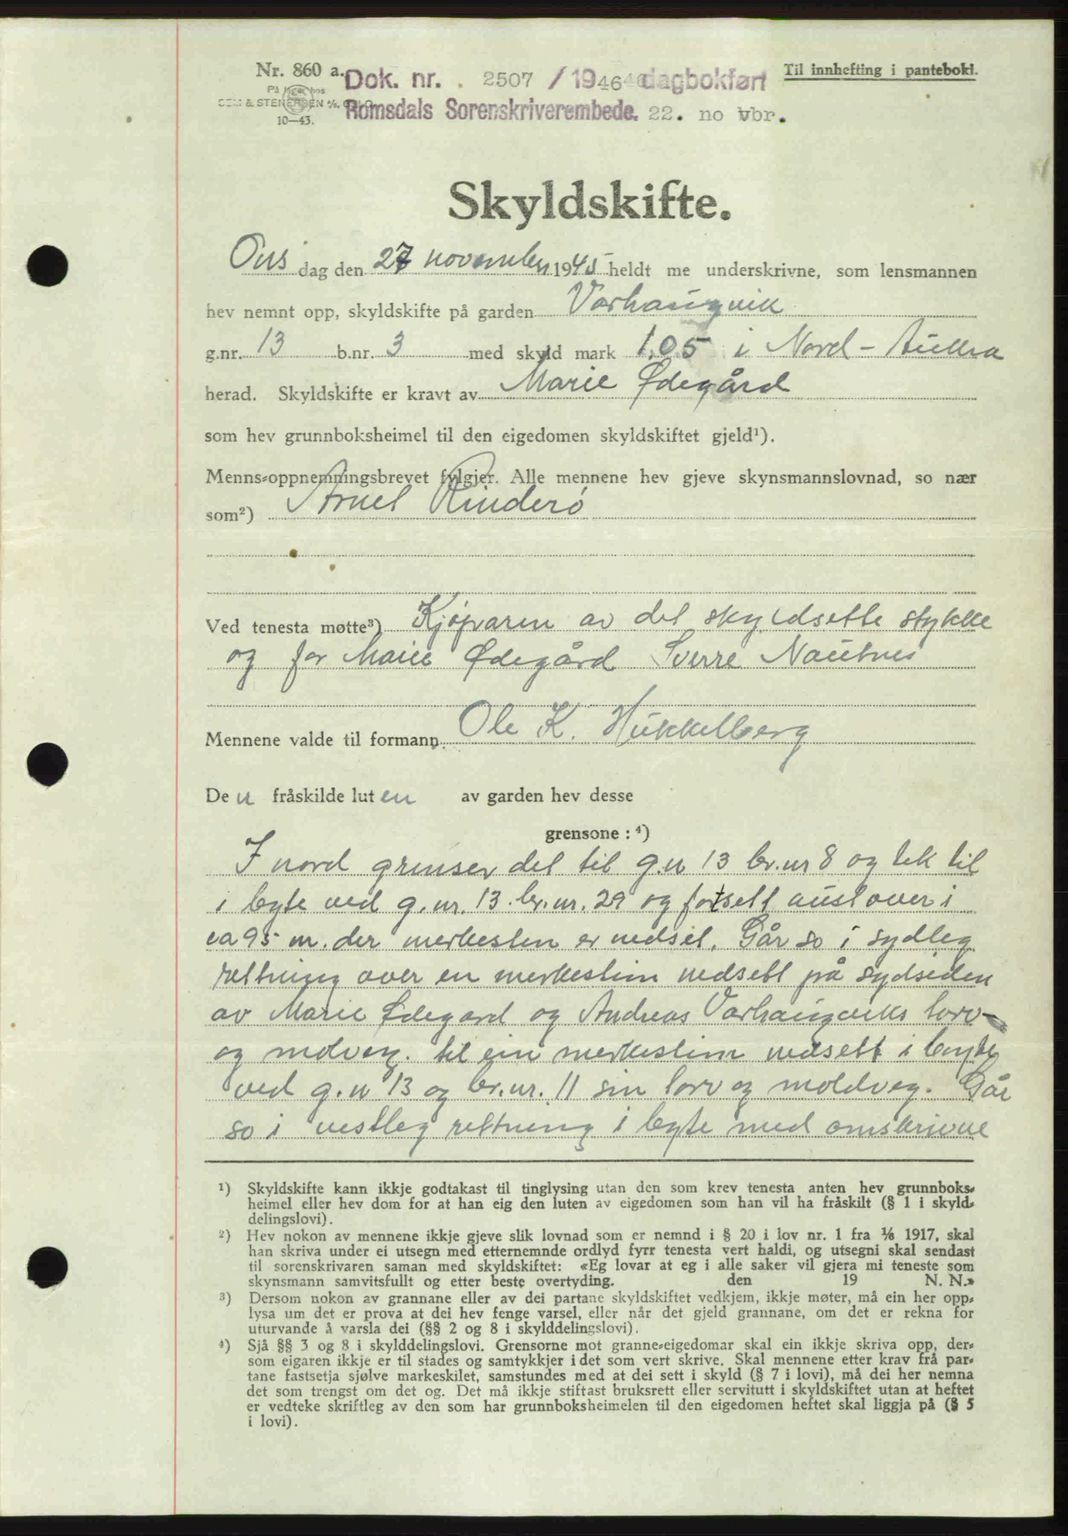 Nr. 860 a.
Dok. nr. 2507 / 1946 dagbokført
Til innhefting i pantebokl.
På lager hos
SEM & STENERSEN A/S, OSLO
Romsdals Sorenskriverembede. 22. november.
10—43.
Skyldskifte.
Ons dag den 27 november 1945 heldt me underskrivne, som lensmannen
hev nemnt opp, skyldskifte på garden Varhaugvik
g.nr. 13 b.nr. 3 med skyld mark 1.05 i Nord-Aukra
herad. Skyldskifte er kravt av Marie Ødegård
som hev grunnboksheimel til den eigedomen skyldskiftet gjeld¹).
Menns-oppnemningsbrevet fylgjer. Alle mennene hev gjeve skynsmannslovnad, so nær
som²) Arnel Rinderö
Ved tenesta møtte³) Kjøparen av det skyldsette stykke
og for Marie Ødegård Sverre Nautnes
Mennene valde til formann Ole K. Hukkelberg
Den fråskilde luten av garden hev desse
grensone : ⁴)
I nord grenser det til g.n 13 br.nr 8 og tek til
i byte ved g.nr. 13. br.nr. 29 og fortsett austover i
ca 95 m. der merkesten er nedset. Går so i sydleg
rettning over en merkestein nedsett på sydsiden
av Marie Ødegard og Andreas Varhaugviks torv-
og moldveg. til ein merkestein nedsett i byte
ved g.n 13 og br.nr. 11 sin torv og moldveg. Går
so i vestleg rettning i byte med omskrivne
¹) Skyldskifte kann ikkje godtakast til tinglysing utan den som krev tenesta anten hev grunnboks-
heimel eller hev dom for at han eig den luten av eigedomen som han vil ha fråskilt (§ 1 i skyld-
delingslovi).
²) Hev nokon av mennene ikkje gjeve slik lovnad som er nemnd i § 20 i lov nr. 1 fra ⅙ 1917, skal
han skriva under ei utsegn med etternemnde ordlyd fyrr tenesta vert haldi, og utsegni skal sendast
til sorenskrivaren saman med skyldskiftet: «Eg lovar at eg i alle saker vil gjera mi teneste som
skynsmann samvitsfullt og etter beste overtyding. den 19 N. N.»
³) Dersom nokon av grannane eller av dei partane skyldskiftet vedkjem, ikkje møter, må ein her opp-
lysa um det er prova at dei hev fenge varsel, eller når det gjeld grannane, om det er rekna for
uturvande å varsla dei (§§ 2 og 8 i skylddelingslovi).
⁴) Sjå §§ 3 og 8 i skylddelingslovi. Grensorne mot granne-eigedomar skal ein ikkje skriva opp, der-
som eigaren ikkje er til stades og samtykkjer i det som vert skrive. Skal mennene etter krav frå par-
tane fastsetja sjølve markeskilet, samstundes med at dei sett i skyld (§ 7 i lovi), må dei her nemna
det som trengst om det og. Det må ikkje stiftast bruksrett eller servitutt i skyldskiftet utan at heftet
er vedteke skriftleg av den som har grunnboksheimelen til den eigedomen heftet skal liggja på (§ 5
i lovi).